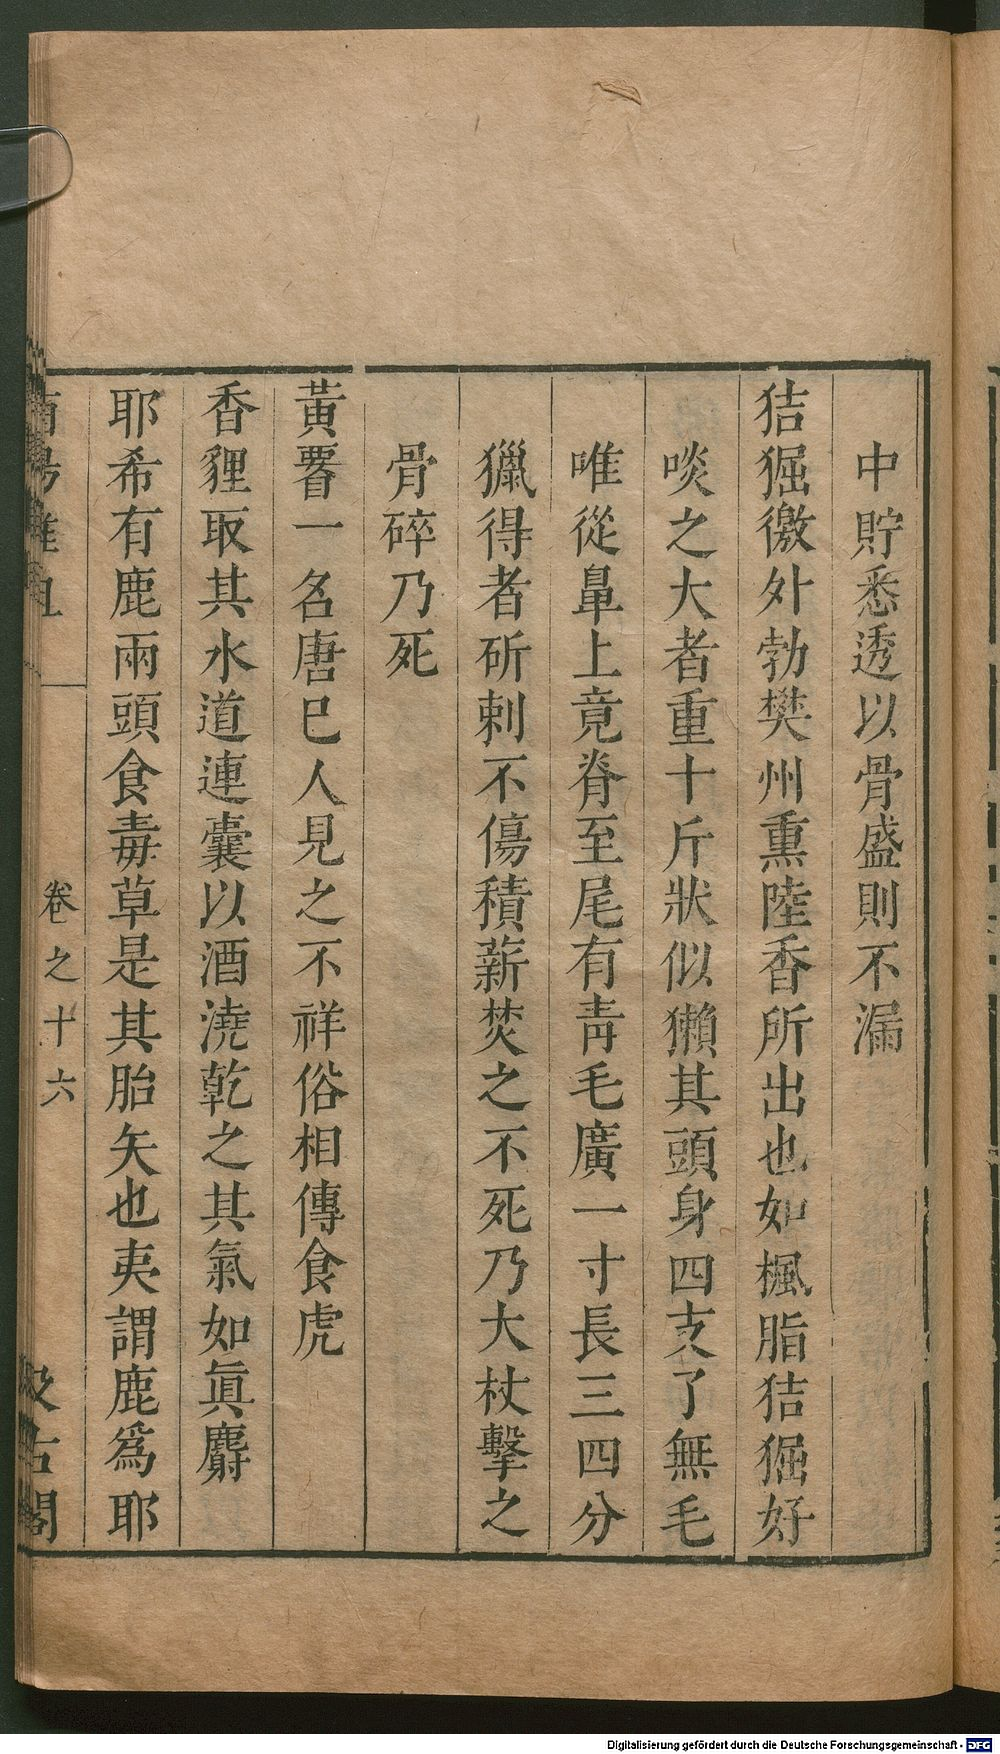 中貯悉透以骨盛則不漏
狤𤟎徼外勃樊州熏陸香所出也如楓脂狤𤟎好
啖之大者重十斤狀似獺其頭身四支了無毛
唯從鼻上竟脊至尾有青毛廣一寸長三四分
獵得者斫刺不傷積薪焚之不死乃大杖擊之
骨碎乃死
黃𦣱一名唐巳人見之不祥俗相傳食虎
香貍取其水道連囊以酒澆乾之其氣如眞麝
耶希有鹿兩頭食毒草是其胎矢也夷謂鹿爲耶
卷之十六
Digitalisierung gefördert durch die Deutsche Forschungsgemeinschaft - DFG